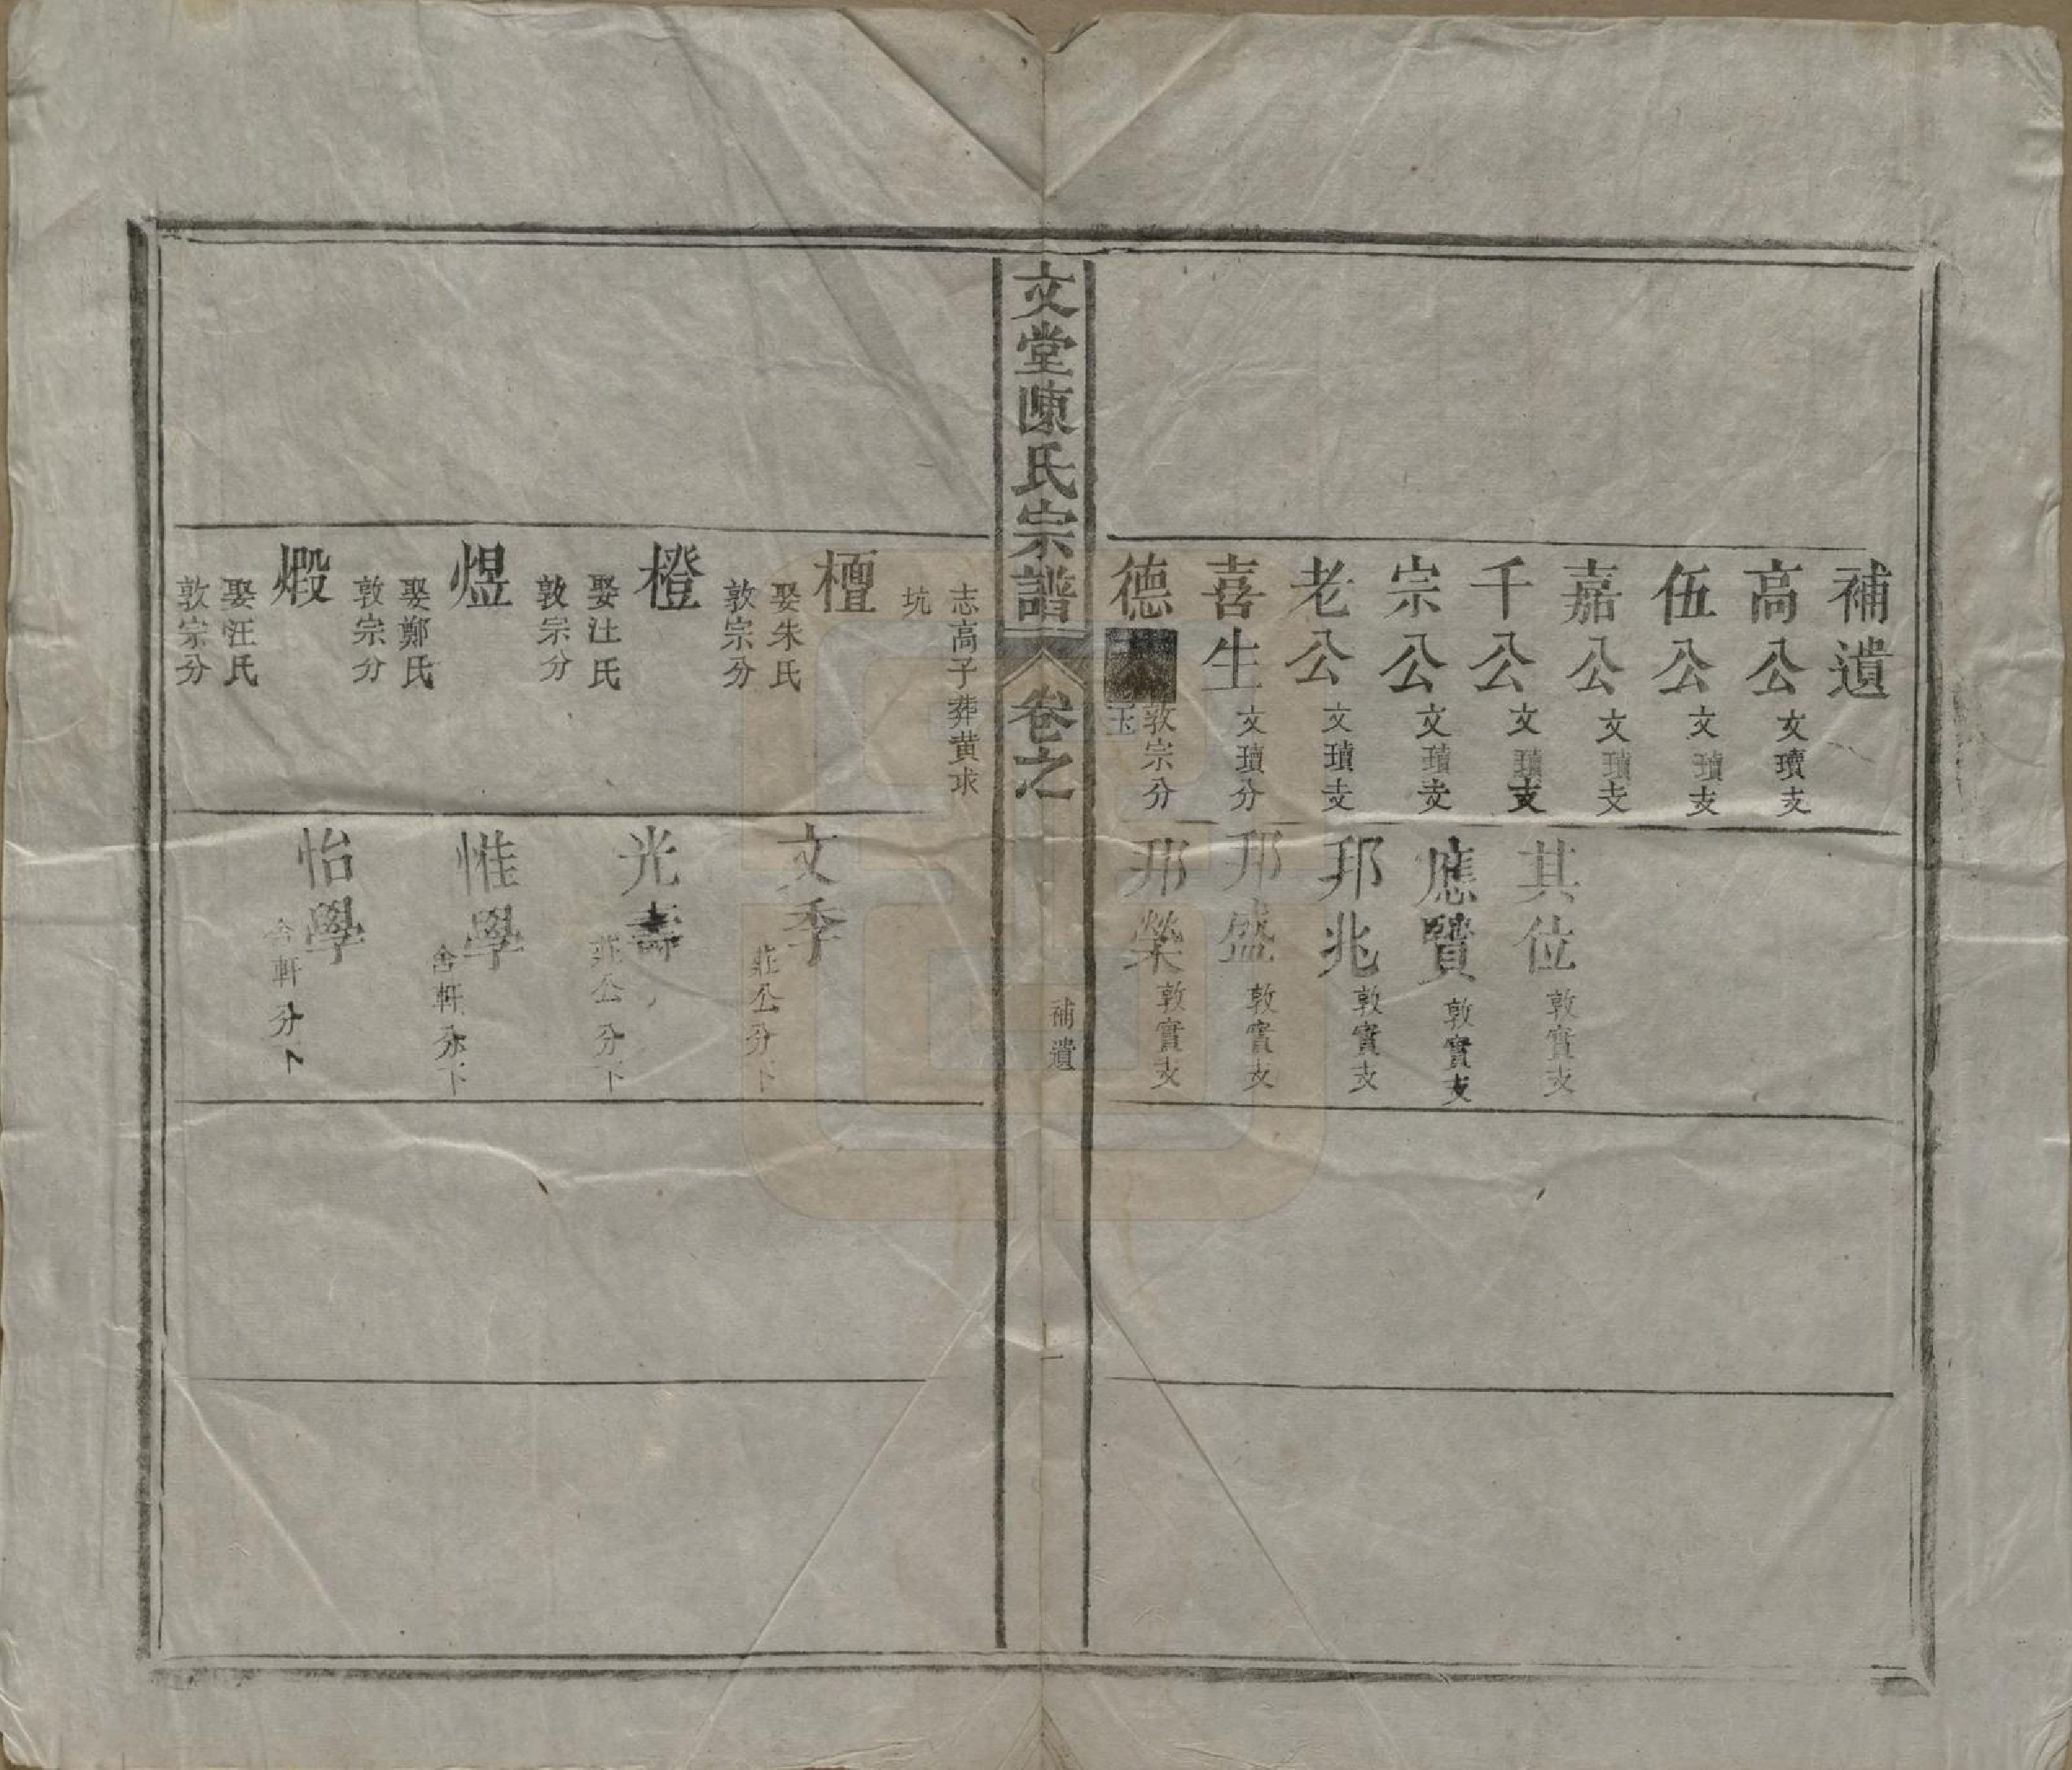 補遺
高公 文瓆支
伍公 文瓆支
嘉公 文瓆支
千公 文瓆支
宗公 文瓆支
老公 文瓆支
喜生 文瓆分
德 敦宗分
玉
其位 敦實支
應賢 敦實支
邦兆 敦實支
邦盛 敦實支
邦榮 敦實支
文堂陳氏宗譜 卷之
補遺
一
志高子葬黄求
坑
檀 娶朱氏
敦宗分
橙 娶汪氏
敦宗分
煜 娶鄭氏
敦宗分
煅 娶汪氏
敦宗分
文季 莊公分下
光壽 莊公分下
惟學 舍軒分下
怡學 舍軒分下